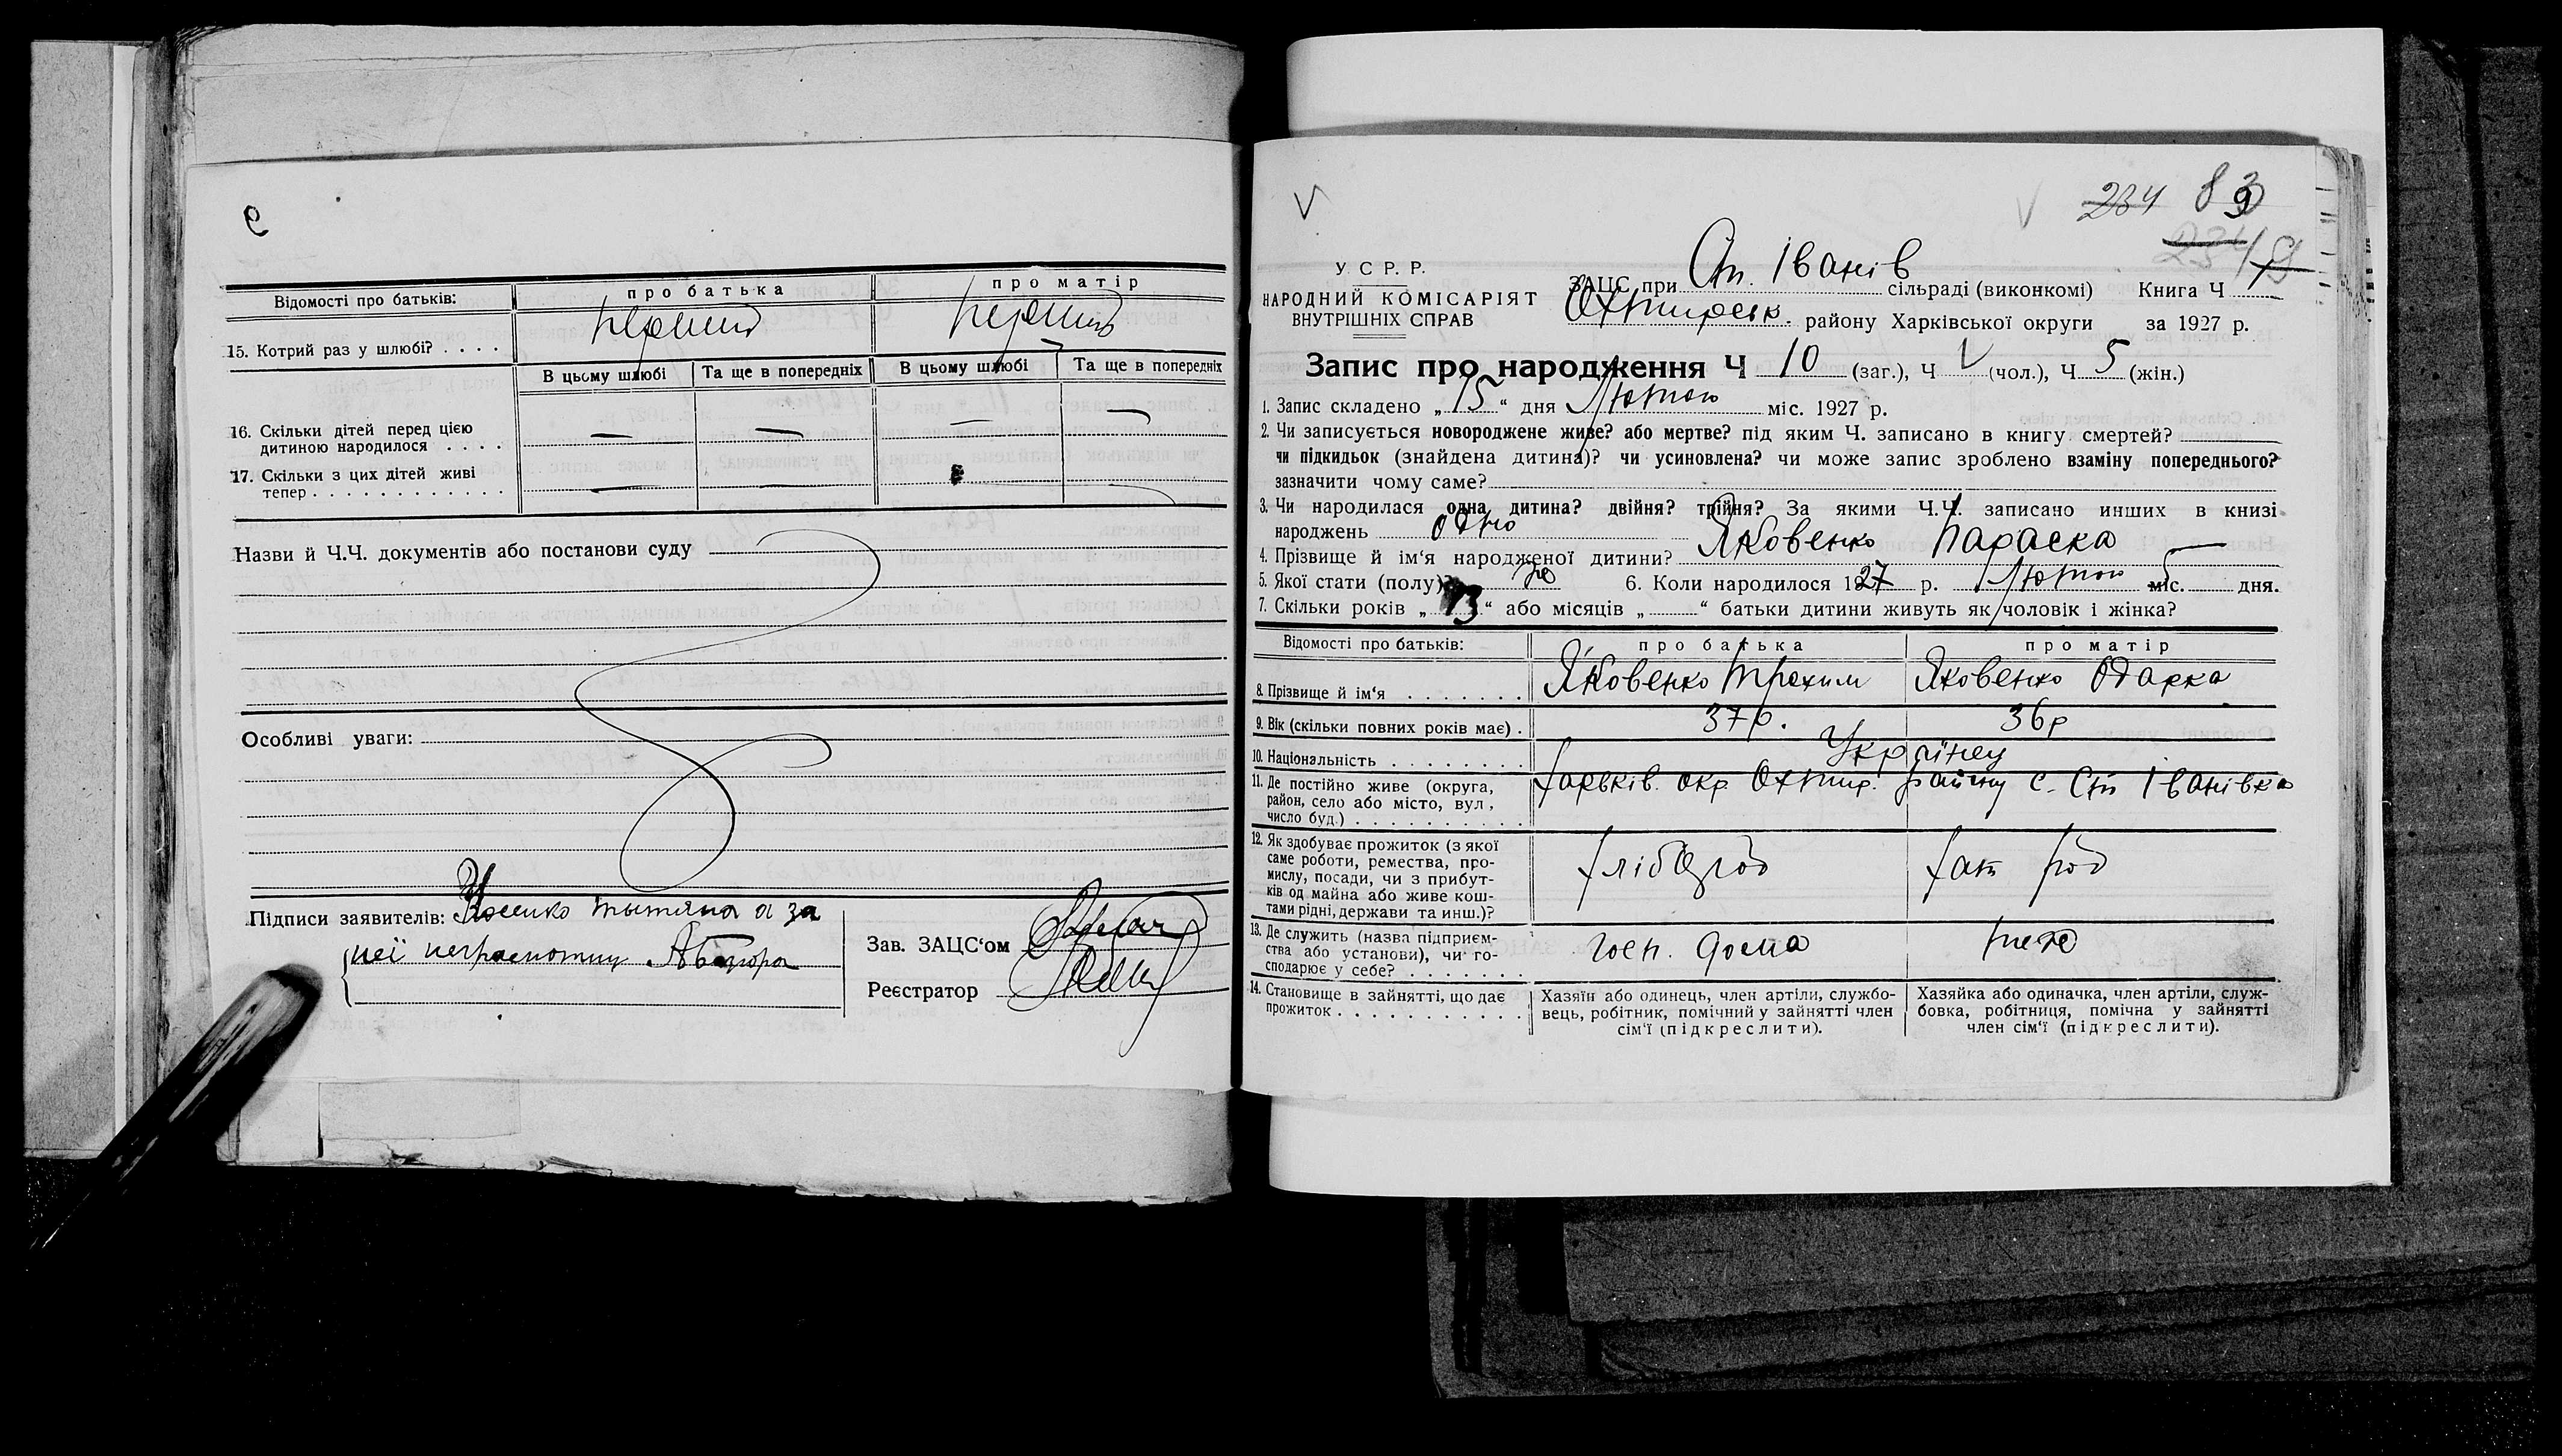 9
Відомості про батьків: про батька про матір
15. Котрий раз у шлюбі? . . . . перший перший
В цьому шлюбі Та ще в попередніх В цьому шлюбі Та ще в попередніх
16. Скільки дітей перед цією
дитиною народилося . . . . — — — —
17. Скільки з цих дітей живі
тепер . . . . . . . . . . . . — —
Назви й Ч.Ч. документів або постанови суду
Особливі уваги:
Підписи заявителів: а за
неї неграмотну
Зав. ЗАЦС‘ом
Реєстратор
234 83
9
234
У. С. Р. Р.
НАРОДНИЙ КОМІСАРІЯТ
ВНУТРІШНІХ СПРАВ
ЗАЦС при Ст. Іванів сільраді (виконкомі) Книга Ч
Охтирськ. району Харківської округи за 1927 р.
Запис про народження Ч 10 (заг.), Ч V (чол.), Ч 5 (жін.)
1. Запис складено „15“ дня Лютого міс. 1927 р.
2. Чи записується новороджене живе? або мертве? під яким Ч. записано в книгу смертей?
чи підкидьок (знайдена дитина)? чи усиновлена? чи може запис зроблено взаміну попереднього?
зазначити чому саме?
3. Чи народилася одна дитина? двійня? трійня? За якими Ч.Ч. записано инших в книзі
народжень одно
4. Прізвище й ім‘я народженої дитини? Яковенко Параска
5. Якої стати (полу)? же 6. Коли народилося 1927 р. Лютого міс. дня.
7. Скільки років „13“ або місяців „ “ батьки дитини живуть як чоловік і жінка?
Відомості про батьків: про батька про матір
8. Прізвище й ім‘я . . . . . . . Яковенко Трохим Яковенко Одарка
9. Вік (скільки повних років має) . 37р. 36р
10. Національність . . . . . . . . Українец
11. Де постійно живе (округа,
район, село або місто, вул.,
число буд.) . . . . . . . . . . Харьків. окр. Охтир. району с. Ст Іванівка
12. Як здобуває прожиток (з якої
саме роботи, ремества, про-
мислу, посади, чи з прибут-
ків од майна або живе кош-
тами рідні, держави та инш.)? хлібороб хат роб
13. Де служить (назва підприєм-
ства або установи), чи го-
сподарює у себе? . . . . . . . госп. дома теже
14. Становище в зайнятті, що дає
прожиток . . . . . . . . . . .
Хазяїн або одинець, член артіли, службо-
вець, робітник, помічний у зайнятті член
сім‘ї (підкреслити).
Хазяйка або одиначка, член артіли, служ-
бовка, робітниця, помічна у зайнятті
член сім‘ї (підкреслити).